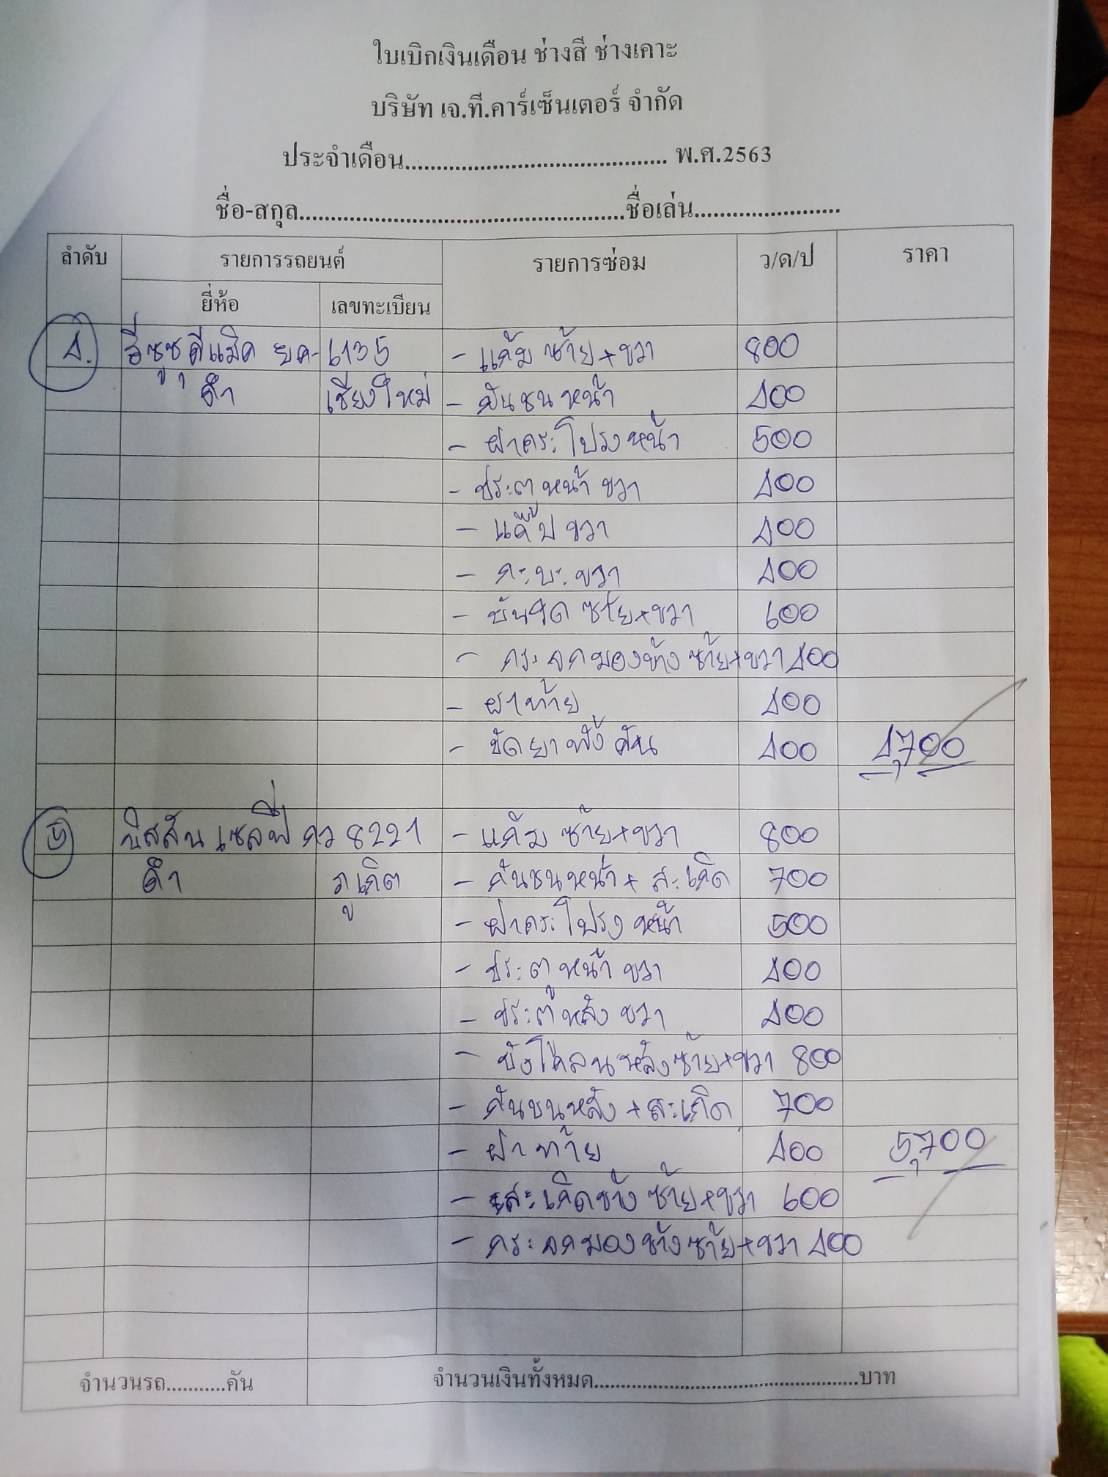 ใบเบิกเงินเดือน ช่างสี ช่างเคาะ
บริษัท เจ.ที.คาร์เซ็นเตอร์ จำกัด
ประจำเดือน........................................ พ.ศ.2563
ชื่อ-สกุล..................................................ชื่อเล่น.......................
ลำดับ รายการรถยนต์ รายการซ่อม ว/ด/ป ราคา
ยี่ห้อ เลขทะเบียน
4. อีซูซุดีแม็ค ยค-6135 - แก้ม ซ้าย+ขวา 800
ดำ เชียงใหม่ - กันชนหน้า 400
- ฝากระโปรงหน้า 500
- ประตูหน้า ขวา 400
- แค๊ป ขวา 400
- กะบะ ขวา 400
- บันได ซ้าย+ขวา 600
- กระจกมองข้าง ซ้าย+ขวา 400
- ฝาท้าย 400
- ขัดยาทั้งคัน 400 4,700
5 นิสสัน เซลฟี่ กว 8221 - แก้ม ซ้าย+ขวา 800
ดำ ภูเก็ต - กันชนหน้า + สะเกิด 700
- ฝากระโปรง หน้า 500
- ประตูหน้า ขวา 400
- ประตูหลัง ขวา 400
- บังโคลนหลังซ้าย+ขวา 800
- กันชนหลัง + สะเกิด 700
- ฝาท้าย 400 5,700
- สะเกิดข้าง ซ้าย+ขวา 600
- กระจกมองข้างซ้าย+ขวา 400
จำนวนรถ...........คัน จำนวนเงินทั้งหมด..................................................บาท